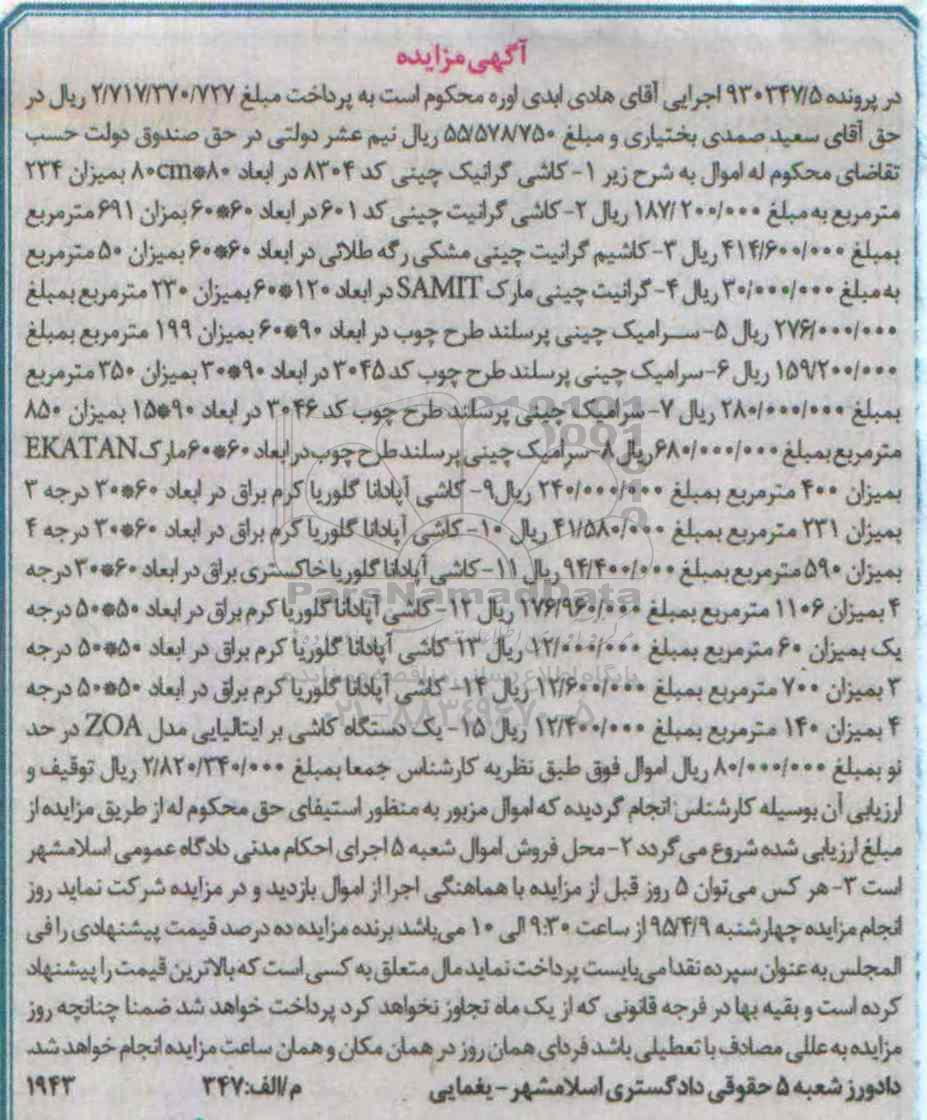 آگهی مزایده
در پرونده ۹۳۰۳۴۷/۵ اجرایی آقای هادی ابدی اوره محکوم است به پرداخت مبلغ ۲/۷۱۷/۳۷۰/۷۲۷ ریال در
حق آقای سعید صمدی بختیاری و مبلغ ۵۵/۵۷۸/۷۵۰ ریال نیم عشر دولتی در حق صندوق دولت حسب
تقاضای محکوم له اموال به شرح زیر ۱- کاشی گرانیک چینی کد ۸۳۰۴ در ابعاد ۸۰*۸۰cm بمیزان ۲۳۴
مترمربع به مبلغ ۱۸۷/۲۰۰/۰۰۰ ریال ۲- کاشی گرانیت چینی کد ۶۰۱ در ابعاد ۶۰*۶۰ بمزان ۶۹۱ مترمربع
بمبلغ ۴۱۴/۶۰۰/۰۰۰ ریال ۳- کاشیم گرانیت چینی مشکی رگه طلائی در ابعاد ۶۰*۶۰ بمیزان ۵۰ مترمربع
به مبلغ ۳۰/۰۰۰/۰۰۰ ریال ۴- گرانیت چینی مارک SAMIT در ابعاد ۱۲۰*۶۰ بمیزان ۲۳۰ مترمربع بمبلغ
۲۷۶/۰۰۰/۰۰۰ ریال ۵- سرامیک چینی پرسلند طرح چوب در ابعاد ۹۰*۶۰ بمیزان ۱۹۹ مترمربع بمبلغ
۱۵۹/۲۰۰/۰۰۰ ریال ۶- سرامیک چینی پرسلند طرح چوب کد ۳۰۴۵ در ابعاد ۹۰*۳۰ بمیزان ۳۵۰ مترمربع
بمبلغ ۲۸۰/۰۰۰/۰۰۰ ریال ۷- سرامیک چینی پرسلند طرح چوب کد ۳۰۴۶ در ابعاد ۹۰*۱۵ بمیزان ۸۵۰
مترمربع بمبلغ ۶۸۰/۰۰۰/۰۰۰ ریال ۸- سرامیک چینی پرسلند طرح چوب در ابعاد ۶۰*۶۰ مارک EKATAN
بمیزان ۴۰۰ مترمربع بمبلغ ۲۴۰/۰۰۰/۰۰۰ ریال ۹- کاشی آپادانا گلوریا کرم براق در ابعاد ۶۰*۳۰ درجه ۳
بمیزان ۲۳۱ مترمربع بمبلغ ۴۱/۵۸۰/۰۰۰ ریال ۱۰- کاشی آپادانا گلوریا کرم براق در ابعاد ۶۰*۳۰ درجه ۴
بمیزان ۵۹۰ مترمربع بمبلغ ۹۴/۴۰۰/۰۰۰ ریال ۱۱- کاشی آپادانا گلوریا خاکستری براق در ابعاد ۶۰*۳۰ درجه
۴ بمیزان ۱۱۰۶ مترمربع بمبلغ ۱۷۶/۹۶۰/۰۰۰ ریال ۱۲- کاشی آپادانا گلوریا کرم براق در ابعاد ۵۰*۵۰ درجه
یک بمیزان ۶۰ مترمربع بمبلغ ۱۲/۰۰۰/۰۰۰ ریال ۱۳ کاشی آپادانا گلوریا کرم براق در ابعاد ۵۰*۵۰ درجه
۳ بمیزان ۷۰۰ مترمربع بمبلغ ۱۲/۶۰۰/۰۰۰ ریال ۱۴- کاشی آپادانا گلوریا کرم براق در ابعاد ۵۰*۵۰ درجه
۴ بمیزان ۱۴۰ مترمربع بمبلغ ۱۲/۴۰۰/۰۰۰ ریال ۱۵- یک دستگاه کاشی بر ایتالیایی مدل ZOA در حد
نو بمبلغ ۸۰/۰۰۰/۰۰۰ ریال اموال فوق طبق نظریه کارشناس جمعا بمبلغ ۲/۸۲۰/۳۴۰/۰۰۰ ریال توقیف و
ارزیابی آن بوسیله کارشناس انجام گردیده که اموال مزبور به منظور استیفای حق محکوم له از طریق مزایده از
مبلغ ارزیابی شده شروع می گردد ۲- محل فروش اموال شعبه ۵ اجرای احکام مدنی دادگاه عمومی اسلامشهر
است ۳- هر کس می‌توان ۵ روز قبل از مزایده با هماهنگی اجرا از اموال بازدید و در مزایده شرکت نماید روز
انجام مزایده چهارشنبه ۹۵/۴/۹ از ساعت ۹:۳۰ الی ۱۰ می‌باشد برنده مزایده ده درصد قیمت پیشنهادی را فی
المجلس به عنوان سپرده نقدا می‌بایست پرداخت نماید مال متعلق به کسی است که بالاترین قیمت را پیشنهاد
کرده است و بقیه بها در فرجه قانونی که از یک ماه تجاوز نخواهد کرد پرداخت خواهد شد ضمنا چنانچه روز
مزایده به عللی مصادف با تعطیلی باشد فردای همان روز در همان مکان و همان ساعت مزایده انجام خواهد شد.
دادورز شعبه ۵ حقوقی دادگستری اسلامشهر - یغمایی م/الف: ۳۴۷ ۱۹۴۳
ParsNamadData